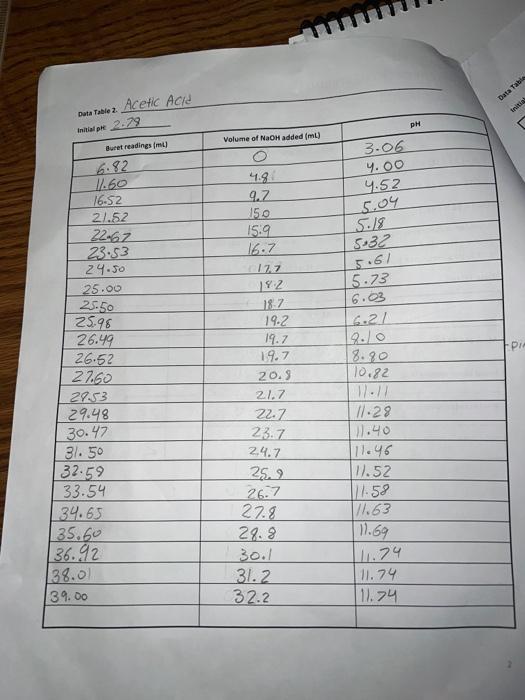 Data Table 2. Acetic Acid
Initial pH: 2.79
Buret readings (mL) Volume of NaOH added (mL) pH
6.82 0 3.06
11.60 4.8 4.00
16.52 9.7 4.52
21.52 15.0 5.04
22.67 15.9 5.18
23.53 16.7 5.32
24.50 17.7 5.61
25.00 18.2 5.73
25.50 18.7 6.03
25.98 19.2 6.21
26.49 19.7 9.10
26.52 19.7 8.80
27.60 20.8 10.82
28.53 21.7 11.11
29.48 22.7 11.28
30.47 23.7 11.40
31.50 24.7 11.46
32.59 25.9 11.52
33.54 26.7 11.58
34.65 27.8 11.63
35.60 28.8 11.69
36.92 30.1 11.74
38.01 31.2 11.74
39.00 32.2 11.74
Data Table
2